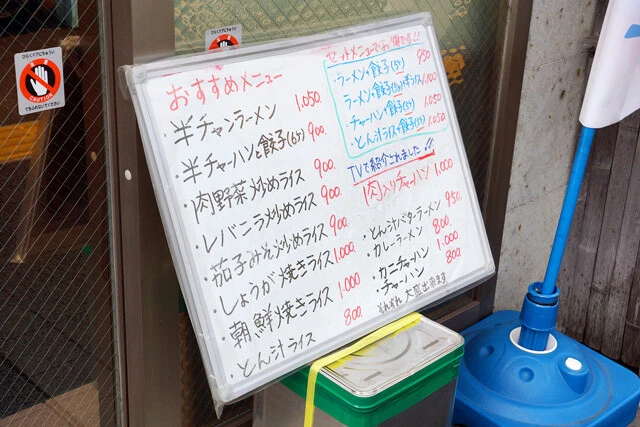 ひらくドアにちゅうい
CAUTION
てをふれないでください
おすすめメニュー
・半チャンラーメン 1,050.
・半チャーハンと餃子(5ケ) 900.
・肉野菜炒めライス 900.
・レバニラ炒めライス 900.
・茄子みそ炒めライス 900.
・しょうが焼きライス 1,000.
・朝鮮焼きライス 1,000.
・とん汁ライス 800.
セットメニューでお得です!!
・ラーメン+餃子(5ケ) 950
・ラーメン+餃子(5ケ)+半ライス 1,100
・チャーハン+餃子(5ケ) 1,050
・とん汁ライス+餃子(5ケ) 1,050
TVで紹介されました!!
肉入りチャーハン 1,000
・とん汁バターラーメン 950.
・カレーラーメン 800.
・カニチャーハン 1,000.
・チャーハン 800.
それぞれ 大盛出来ます